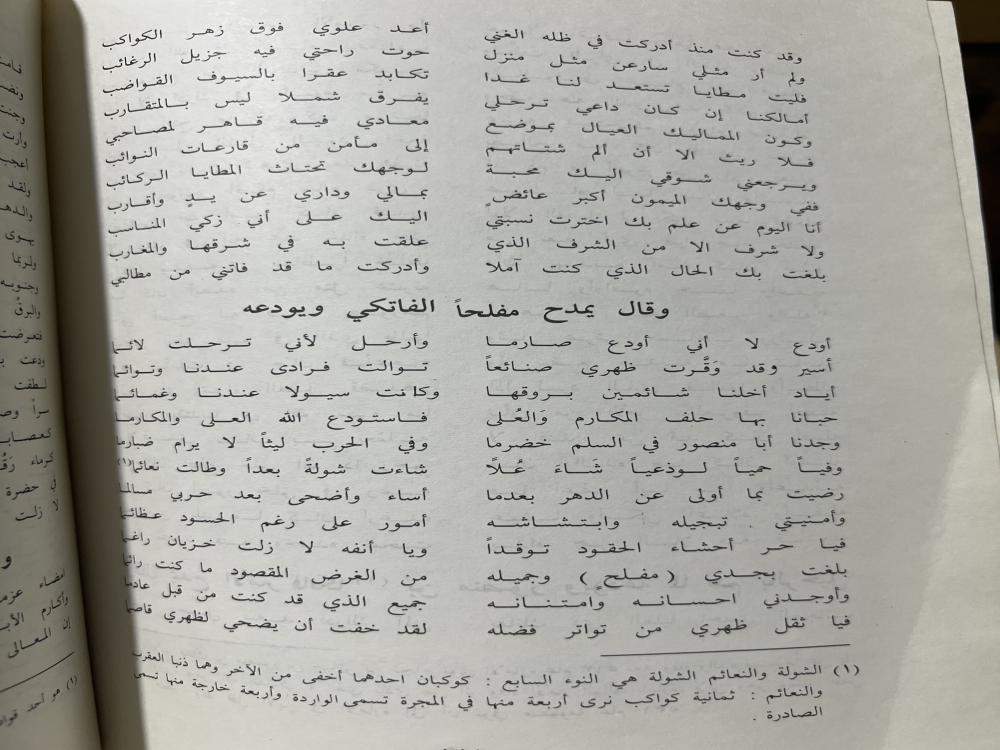 وقد كنت منذ أدركت في ظله الغني أعد علوي فوق زهر الكواكب
ولم أر مثلي سارعن مثل منزل حوت راحتي فيه جزيل الرغائب
فليت مطايا تستعد لنا غدا تكابد عقرا بالسيوف القواضب
أمالكنا إن كان داعي ترحلي يفرق شملا ليس بالمتقارب
وكون المماليك العيال بموضع معادي فيه قاهر لمصاحبي
فلا ريث الا أن ألم شتاتهم إلى مأمن من قارعات النوائب
ويرجعني شوقي اليك محبة لوجهك تحتاث المطايا الركائب
ففي وجهك الميمون أكبر عائض بمالي وداري عن يدٍ وأقارب
أنا اليوم عن علم بك اخترت نسبتي اليك على أني زكي المناسب
ولا شرف الا من الشرف الذي علقت به في شرقها والمغارب
بلغت بك الحال الذي كنت آملا وأدركت ما قد فاتني من مطالبي
وقال يمدح مفلحاً الفاتكي ويودعه
أودع لا أني أودع صارما وأرحل لأني ترحلت لائما
أسير وقد وَقَّرت ظهري صنائعاً توالت فرادى عندنا وتوائما
أياد أخلنا شائمين بروقها وكانت سيولا عندنا وغمائما
حبانا بها حلف المكارم وَالعُلى فاستودع الله العلى والمكارما
وجدنا أبا منصور في السلم خضرما وفي الحرب ليثاً لا يرام ضبارما
وفياً حمياً لوذعياً شَاءَ عُلاً شاءت شولةً بعداً وطالت نعائما(١)
رضيت بما أولى عن الدهر بعدما أساء وأضحى بعد حربي مسالما
وأمنيتي تبجيله وابتشاشه أمور على رغم الحسود عظائما
فيا حر أحشاء الحقود توقداً ويا أنفه لا زلت خزيان راغما
بلغت بجدي (مفلح) وجميله من الغرض المقصود ما كنت رائما
وأوجدني احسانه وامتنانه جميع الذي قد كنت من قبل عادما
فيا ثقل ظهري من تواتر فضله لقد خفت أن يضحي لظهري قاصما
(١) الشولة والنعائم الشولة هي النوء السابع : كوكبان احدهما أخفى من الآخر وهما ذنبا العقرب
والنعائم : ثمانية كواكب نرى أربعة منها في المجرة تسمى الواردة وأربعة خارجة منها تسمى
الصادرة .